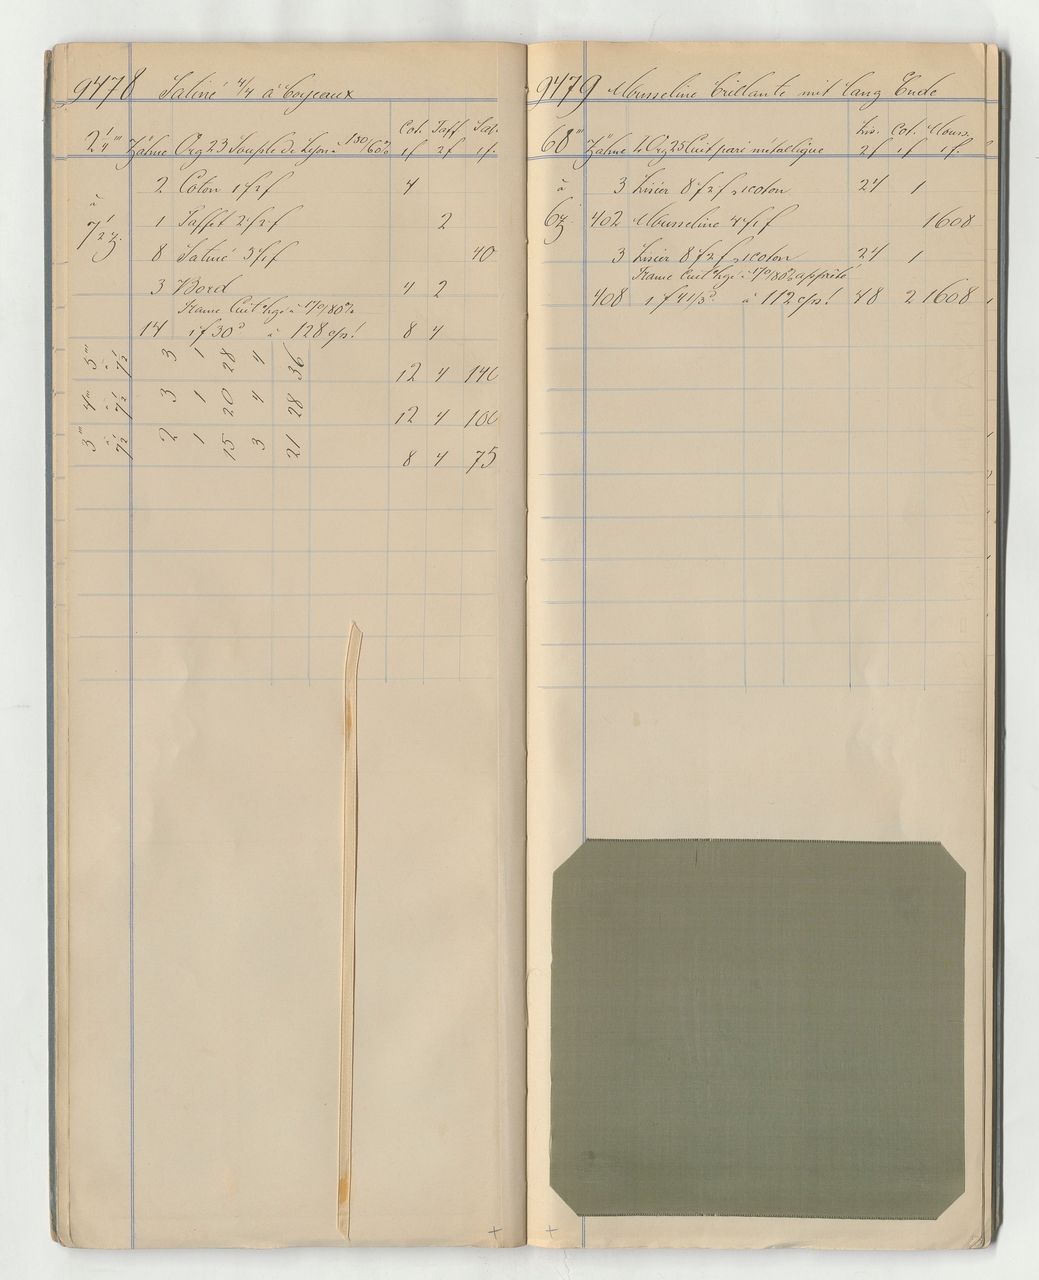 9478 Satiné 4/4 à Boyeaux
Cot. Taff. Sat.
2 1/4''' Zähne Org 23 Souple de Lyon à 150/60% 1f 2f 1f.
2 Coton 1f2f 4
à
7 1/2 z. 1 Taffet 2f2f 2
8 Satiné 5f1f 40
3 Bord 4 2
Trame Cuit hgé à 70/80%
14 1f 30d à 128 cps! 8 4
5''' à 7 1/2 3 1 28 4 36 12 4 140
4''' à 7 1/2 3 1 20 4 28 12 4 100
3''' à 7 1/2 2 1 15 3 21 8 4 75
9479 Mousseline brillante mit lang Ende
Lis. Cot. Mouss.
68''' Zähne Org 23 Cuit paré métallique 2f 1f 1f.
à 3 Lisier 8f2f 1 coton 24 1
6 z. 402 Mousseline 4f1f 1608
3 Lisier 8f2f 1 coton 24 1
Trame Cuit hgé à 70/80% apprêté
408 1f 41/3d à 112 cps! 48 2 1608